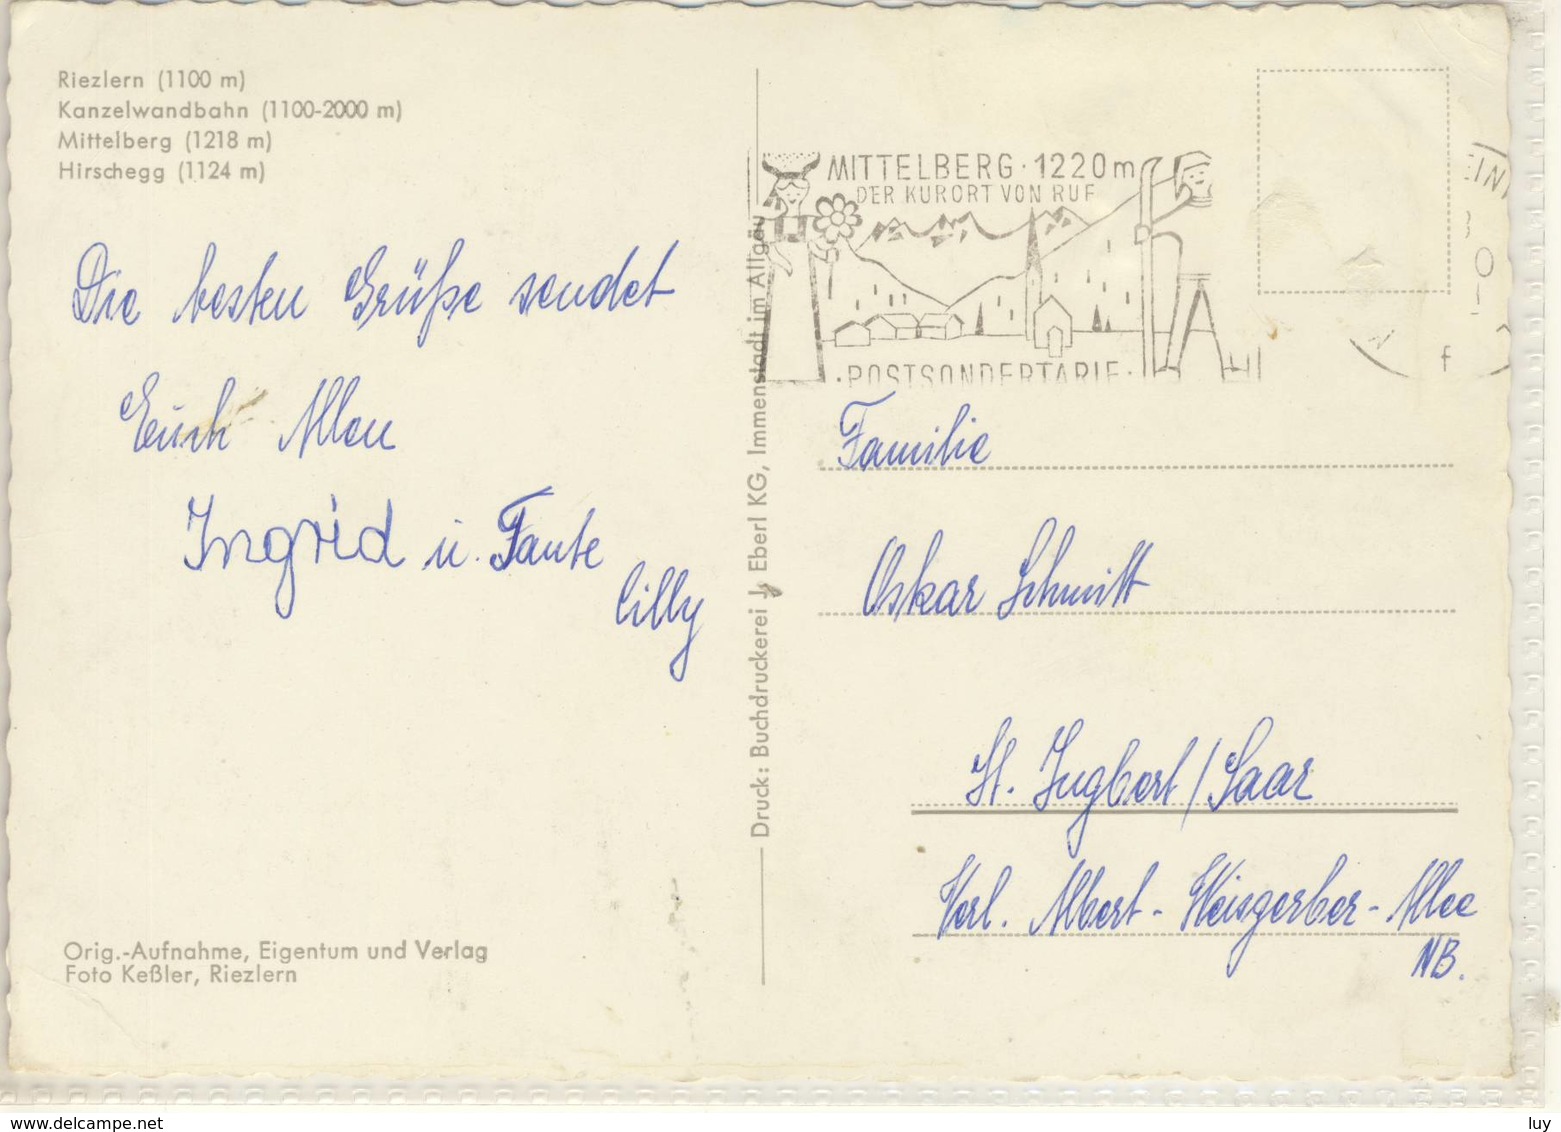 Riezlern (1100 m)
Kanzelwandbahn (1100-2000 m)
Mittelberg (1218 m)
Hirschegg (1124 m)
Die besten Grüße sendet
Euch Allen
Ingrid u. Tante
Cilly
Orig.-Aufnahme, Eigentum und Verlag
Foto Keßler, Riezlern
Druck: Buchdruckerei J. Eberl KG, Immenstadt im Allgäu
MITTELBERG · 1220m
DER KURORT VON RUF
· POSTSONDERTARIF ·
f
Familie
Oskar Schmitt
St. Ingbert/Saar
Verl. Albert-Weisgerber-Allee
NB.
www.delcampe.net
luy